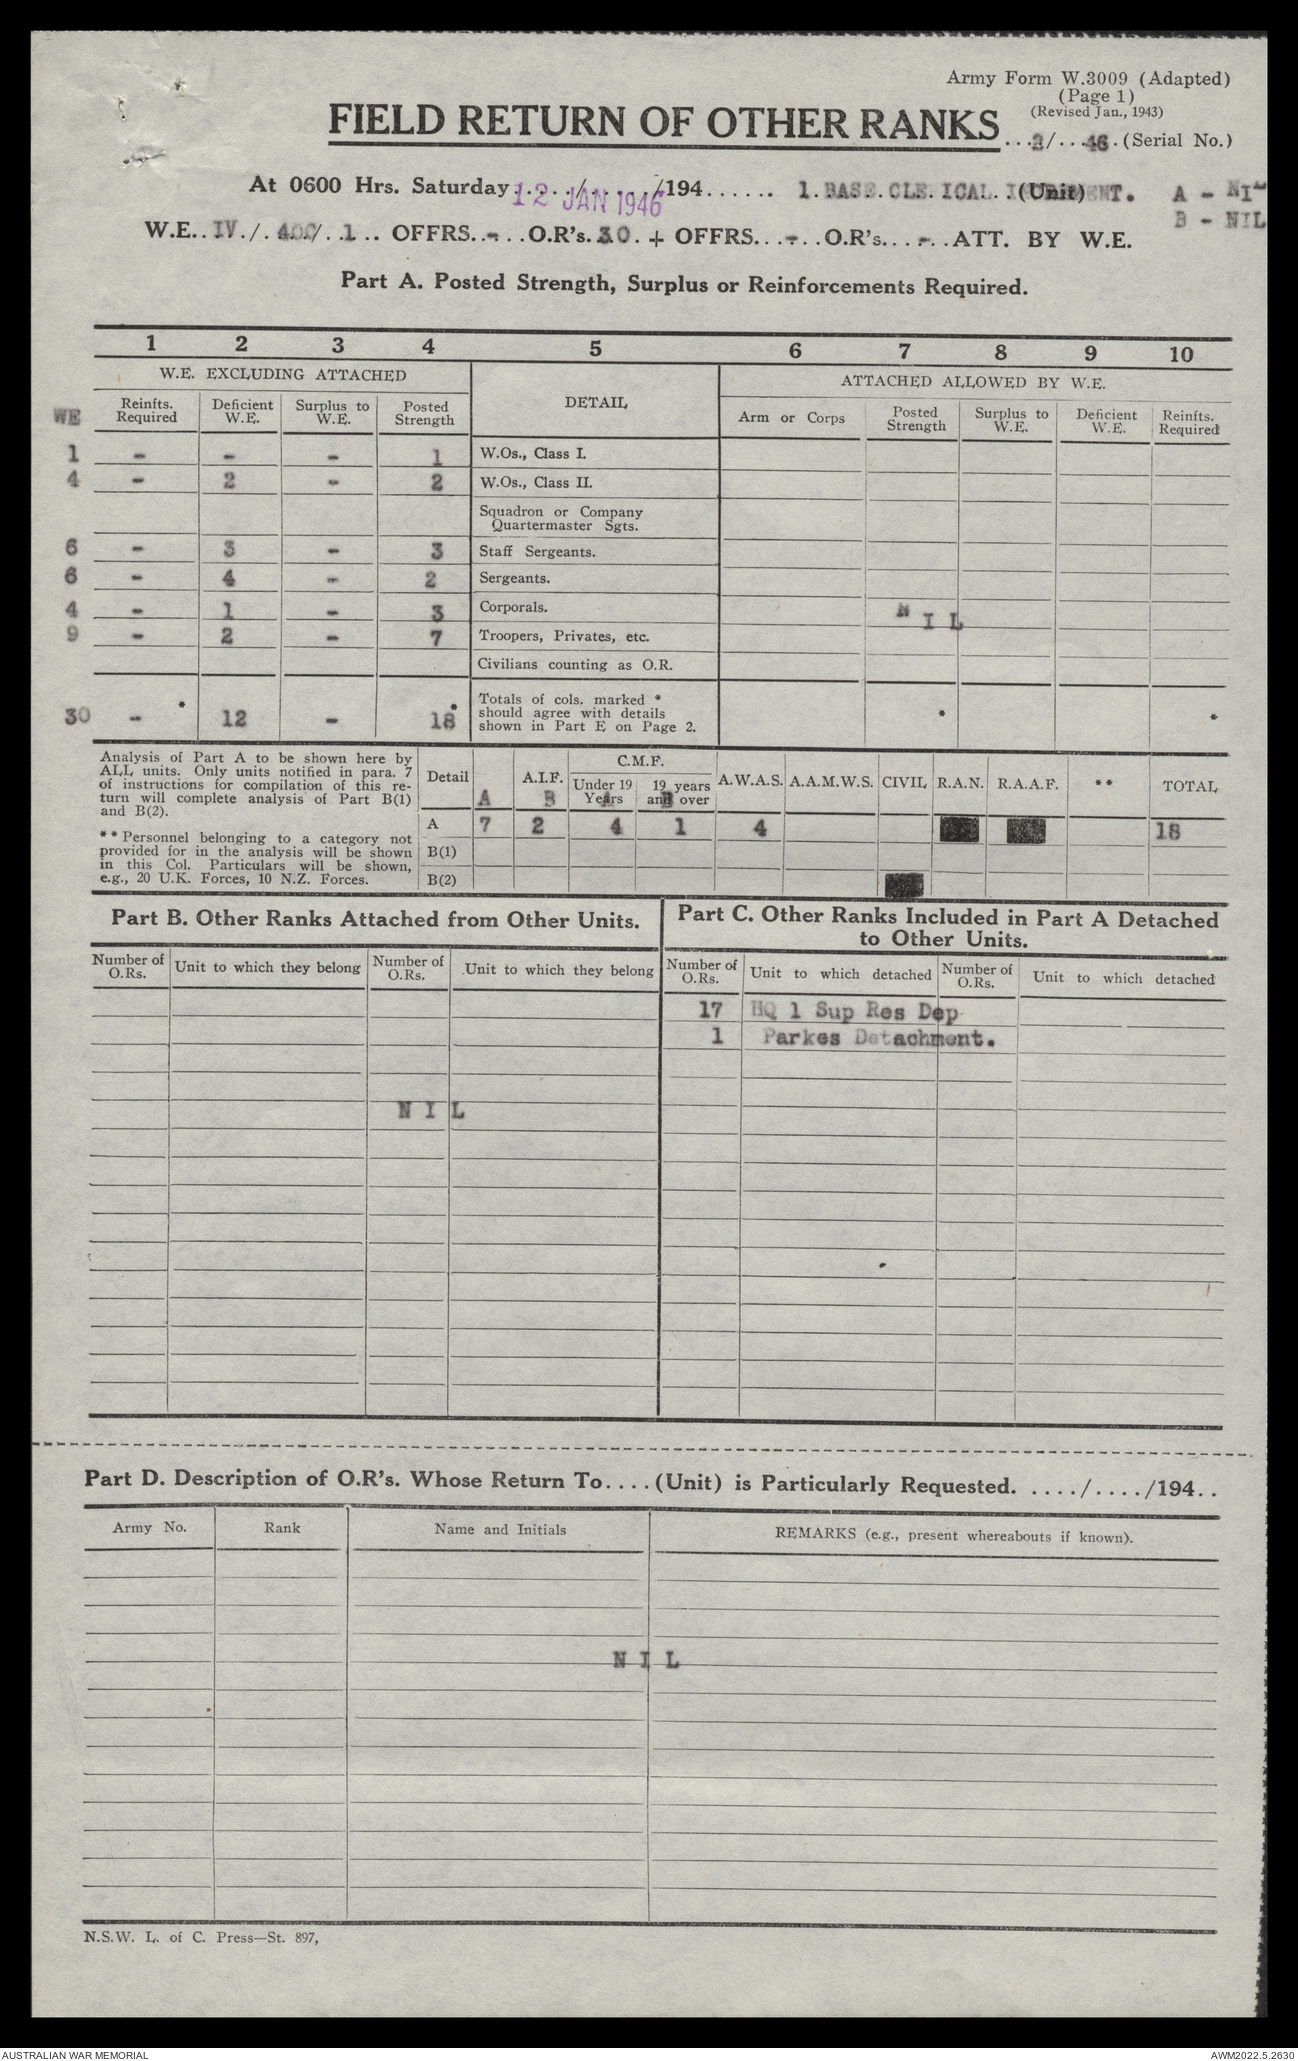 Army Form W.3009 (Adapted)
(Page 1)
(Revised Jan., 1943)
FIELD RETURN OF OTHER RANKS ...2/...46.(Serial No.)
At 0600 Hrs. Saturday....../....../194...... 1.BASE.CLE.ICAL. (Unit) A - NIL
12 JAN 1946
B - NIL
W.E..IV./.400/..1.. OFFRS..-..O.R's.30.+ OFFRS...-..O.R's...-..ATT. BY W.E.
Part A. Posted Strength, Surplus or Reinforcements Required.
1 2 3 4 5 6 7 8 9 10
W.E. EXCLUDING ATTACHED DETAIL ATTACHED ALLOWED BY W.E.
WE Reinfts. Required Deficient W.E. Surplus to W.E. Posted Strength Arm or Corps Posted Strength Surplus to W.E. Deficient W.E. Reinfts. Required
1 - - - 1 W.Os., Class I.
4 - 2 - 2 W.Os., Class II.
Squadron or Company
Quartermaster Sgts.
6 - 3 - 3 Staff Sergeants.
6 - 4 - 2 Sergeants.
4 - 1 - 3 Corporals. N I L
9 - 2 - 7 Troopers, Privates, etc.
Civilians counting as O.R.
Totals of cols. marked *
30 - * 12 - 18 * should agree with details * *
shown in Part E on Page 2.
Analysis of Part A to be shown here by
ALL units. Only units notified in para. 7
of instructions for compilation of this re-
turn will complete analysis of Part B(1)
and B(2).
** Personnel belonging to a category not
provided for in the analysis will be shown
in this Col. Particulars will be shown,
e.g., 20 U.K. Forces, 10 N.Z. Forces.
Detail A.I.F. C.M.F. A.W.A.S. A.A.M.W.S. CIVIL R.A.N. R.A.A.F. ** TOTAL
Under 19 Years 19 years and over
A B A B
A 7 2 4 1 4 18
B(1)
B(2)
Part B. Other Ranks Attached from Other Units.
Part C. Other Ranks Included in Part A Detached
to Other Units.
Number of O.Rs. Unit to which they belong Number of O.Rs. Unit to which they belong Number of O.Rs. Unit to which detached Number of O.Rs. Unit to which detached
17 HQ 1 Sup Res Dep
1 Parkes Detachment.
N I L
Part D. Description of O.R's. Whose Return To....(Unit) is Particularly Requested. ..../..../194..
Army No. Rank Name and Initials REMARKS (e.g., present whereabouts if known).
N I L
N.S.W. L. of C. Press—St. 897,
AUSTRALIAN WAR MEMORIAL AWM2022.5.2630